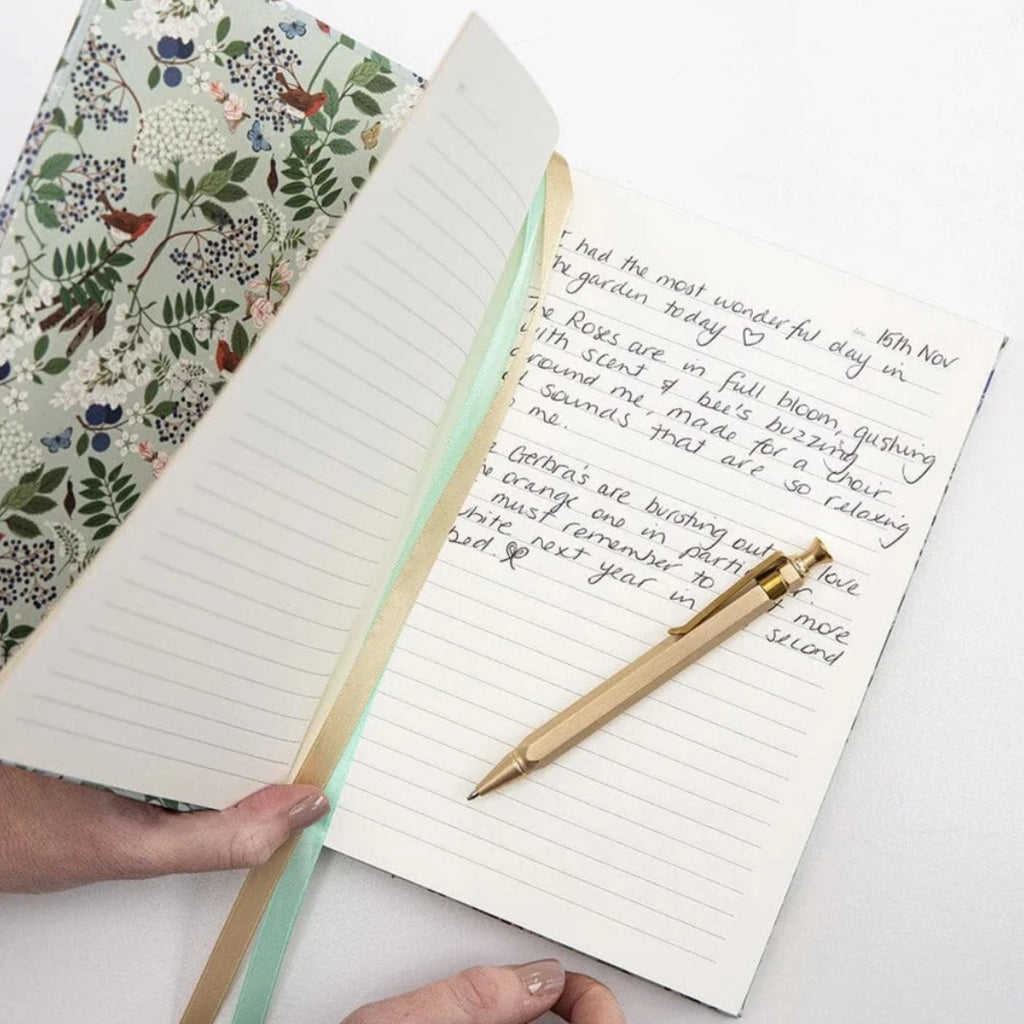 15th Nov
I had the most wonderful day in
the garden today ♡
The Roses are in full bloom, gushing
with scent & bee's buzzing
around me, made for a choir
sounds that are so relaxing
me.
Gerbra's are bursting out, love
the orange one in
must remember to more
white next year in second
bed.